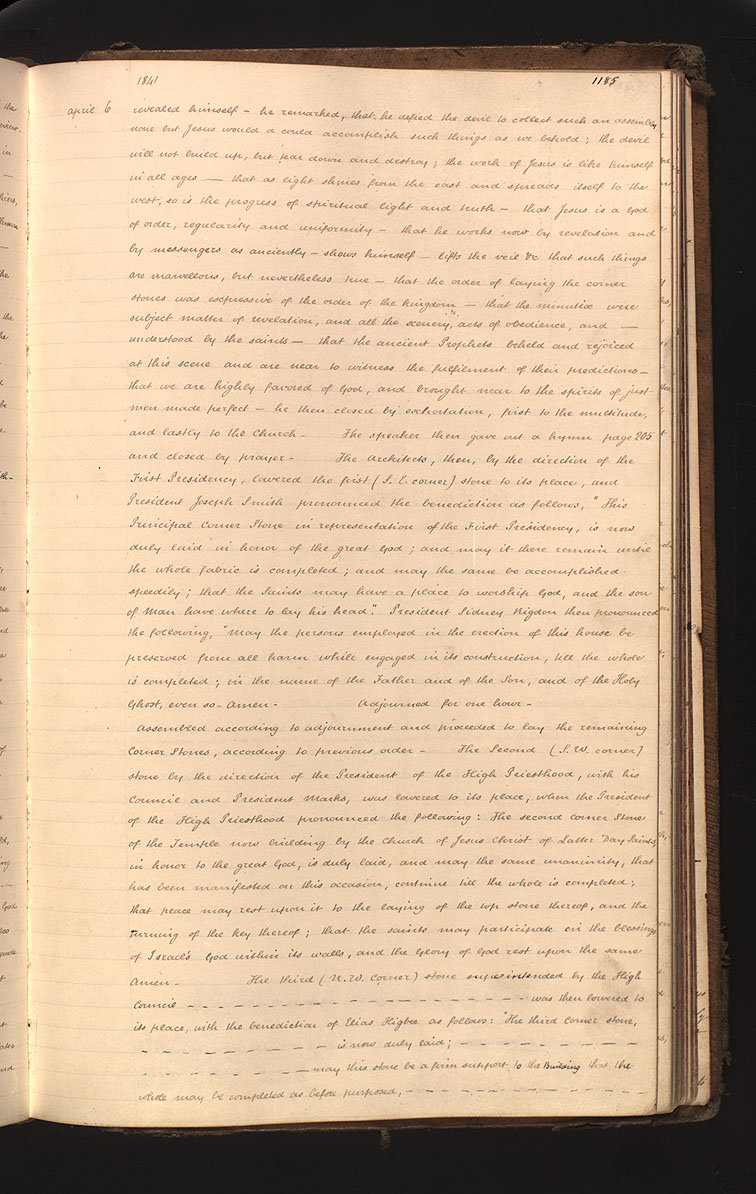 1841
1185
april 6 revealed himself – he remarked, that, he defied the devil to collect such an assembly
none but Jesus would or could accomplish such things as we behold; the devil
will not build up, but tear down and destroy; the work of Jesus is like himself
in all ages — that as light shines from the east and spreads itself to the
west, so is the progress of spiritual light and truth – that Jesus is a God
of order, regularity and uniformity – that he works now by revelation and
by messengers as anciently – shows himself – lifts the veil &c that such things
are marvellous, but nevertheless true – that the order of laying the corner
stones was expressive of the order of the kingdom – that the minutiæ were
subject matter of revelation, and all the scenery, acts of obedience, and —
understood by the saints – that the ancient Prophets beheld and rejoiced
at this scene and are near to witness the fulfilment of their predictions –
that we are highly favored of God, and brought near to the spirits of just
men made perfect – he then closed by exhortation, first to the multitude,
and lastly to the Church – The speaker then gave out a hymn page 205
and closed by prayer – The architects, then, by the direction of the
First Presidency, lowered the first (S. E. corner) stone to its place, and
President Joseph Smith pronounced the benediction as follows, "This
Principal Corner Stone in representation of the First Presidency, is now
duly laid in honor of the great God; and may it there remain until
the whole fabric is completed; and may the same be accomplished
speedily; that the Saints may have a place to worship God, and the son
of Man have where to lay his head". President Sidney Rigdon then pronounced
the following, "may the persons employed in the erection of this house be
preserved from all harm while engaged in its construction, till the whole
is completed; in the name of the Father and of the Son, and of the Holy
Ghost, even so – Amen – Adjourned for one hour –
Assembled according to adjournment and proceeded to lay the remaining
Corner Stones, according to previous order – The Second (S. W. corner)
stone by the direction of the President of the High Priesthood, with his
Council and President Marks, was lowered to its place, when the President
of the High Priesthood pronounced the following: The second corner Stone
of the Temple now building by the Church of Jesus Christ of Latter Day Saints,
in honor to the great God, is duly laid, and may the same unanimity, that
has been manifested on this occasion, continue till the whole is completed;
that peace may rest upon it to the laying of the top stone thereof, and the
turning of the key thereof; that the saints may participate in the blessings
of Israel's God within its walls, and the Glory of God rest upon the same
Amen – The third (N. W. Corner) stone superintended by the High
Council – – – – – – – – – – – – – – – – was then lowered to
its place, with the benediction of Elias Higbee as follows: "The third Corner stone,
– – – – – – – – – is now duly laid; – – – – – – – – –
– – – – – – – – may this stone be a firm support to the Building that the
whole may be completed as before purposed, – – – – – – – – – – –